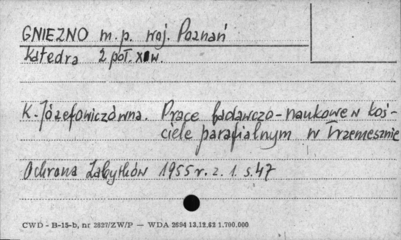 GNIEZNO m.p. woj. Poznań
Katedra 2 poł. XIV w.
K. Józefowiczówna. Prace badawczo-naukowe w koś-
ciele parafialnym w Trzemesznie
Ochrona Zabytków 1955 r. z. 1. s. 47
CWD - B-15-b, nr 2827/ZW/P — WDA 2694 13.12.62 1.700.000